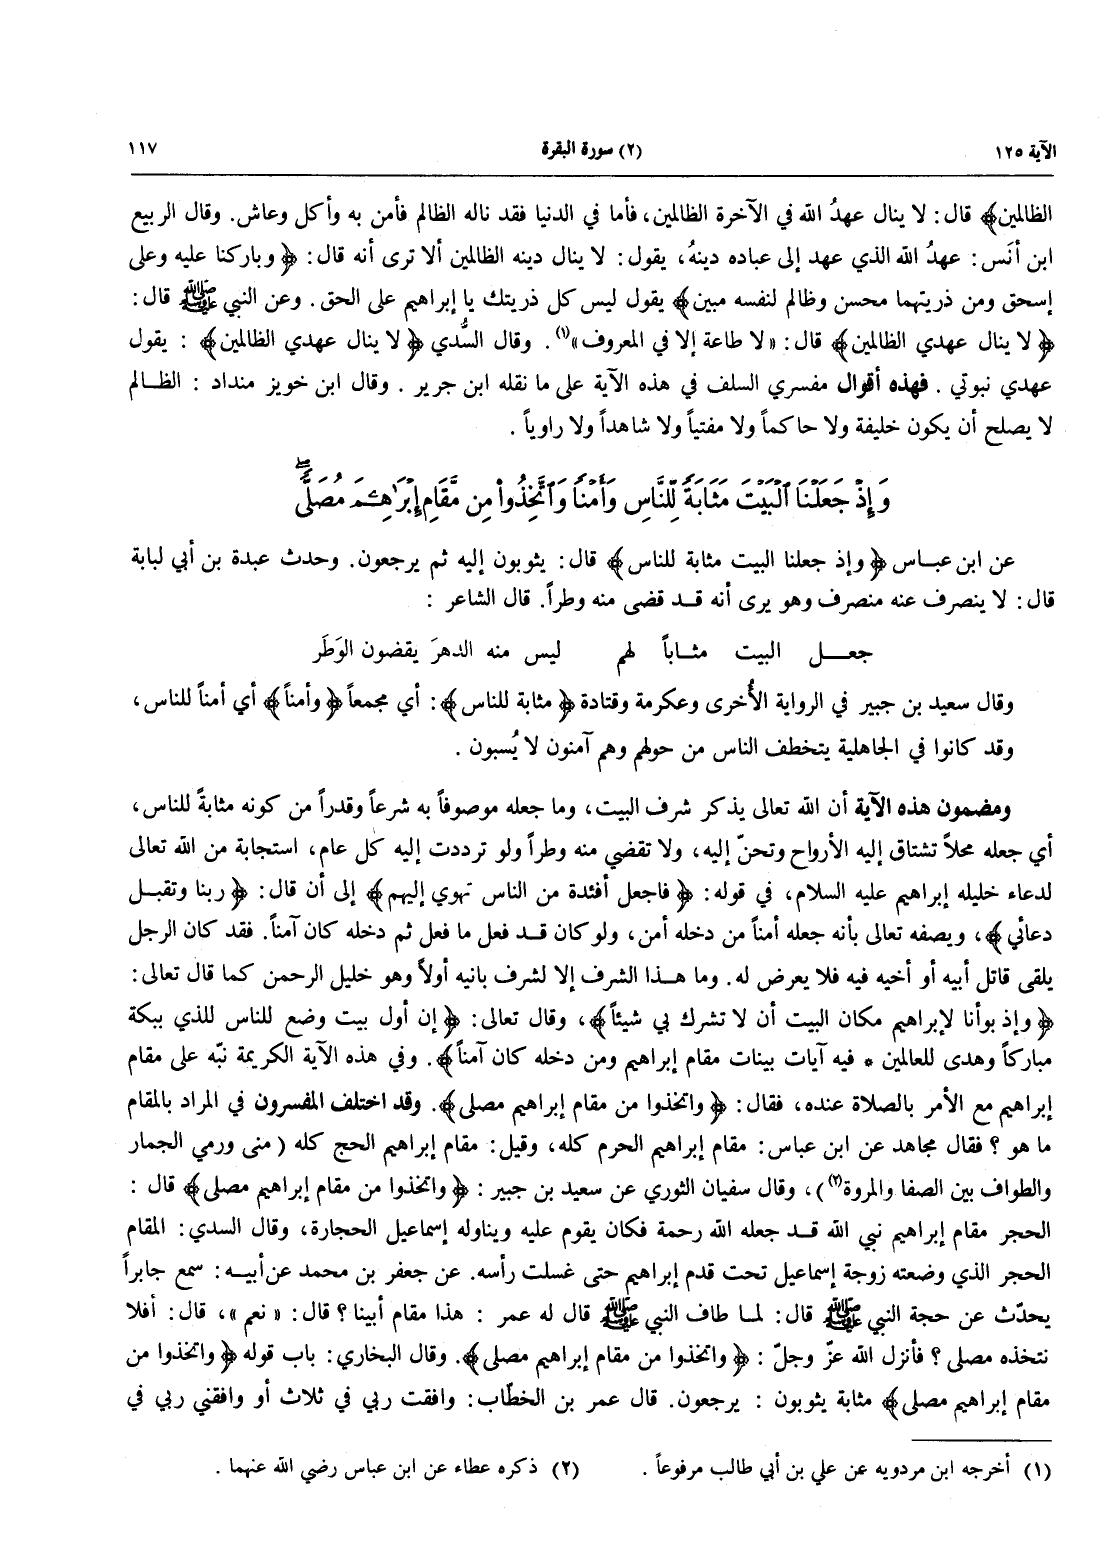 الآية ١٢٥
(٢) سورة البقرة
١١٧
الظالمين﴾ قال: لا ينال عهدُ الله في الآخرة الظالمين، فأما في الدنيا فقد ناله الظالم فأمن به وأكل وعاش. وقال الربيع
ابن أنَس: عهدُ الله الذي عهد إلى عباده دينهُ، يقول: لا ينال دينه الظالمين ألا ترى أنه قال: ﴿وباركنا عليه وعلى
إسحق ومن ذريتهما محسن وظالم لنفسه مبين﴾ يقول ليس كل ذريتك يا إبراهيم على الحق. وعن النبي ﷺ قال:
﴿لا ينال عهدي الظالمين﴾ قال: «لا طاعة إلا في المعروف»(١). وقال السُّدي ﴿لا ينال عهدي الظالمين﴾ : يقول
عهدي نبوتي . فهذه أقوال مفسري السلف في هذه الآية على ما نقله ابن جرير . وقال ابن خويز منداد : الظالم
لا يصلح أن يكون خليفة ولا حاكماً ولا مفتياً ولا شاهداً ولا راوياً .
وَإِذْ جَعَلْنَا ٱلْبَيْتَ مَثَابَةً لِّلنَّاسِ وَأَمْنًا وَٱتَّخِذُوا۟ مِن مَّقَامِ إِبْرَٰهِـۧمَ مُصَلًّىۖ
عن ابن عباس ﴿وإذ جعلنا البيت مثابة للناس﴾ قال: يثوبون إليه ثم يرجعون. وحدث عبدة بن أبي لبابة
قال: لا ينصرف عنه منصرف وهو يرى أنه قد قضى منه وطراً. قال الشاعر :
جعل البيت مثاباً لهم ليس منه الدهرَ يقضون الوَطَر
وقال سعيد بن جبير في الرواية الأُخرى وعكرمة وقتادة ﴿مثابة للناس﴾: أي مجمعاً ﴿وأمناً﴾ أي أمناً للناس،
وقد كانوا في الجاهلية يتخطف الناس من حولهم وهم آمنون لا يُسبون .
ومضمون هذه الآية أن الله تعالى يذكر شرف البيت، وما جعله موصوفاً به شرعاً وقدراً من كونه مثابةً للناس،
أي جعله محلاً تشتاق إليه الأرواح وتحنّ إليه، ولا تقضي منه وطراً ولو ترددت إليه كل عام، استجابة من الله تعالى
لدعاء خليله إبراهيم عليه السلام، في قوله: ﴿فاجعل أفئدة من الناس تهوي إليهم﴾ إلى أن قال: ﴿ربنا وتقبل
دعائي﴾، ويصفه تعالى بأنه جعله أمناً من دخله أمن، ولو كان قد فعل ما فعل ثم دخله كان آمناً. فقد كان الرجل
يلقى قاتل أبيه أو أخيه فيه فلا يعرض له. وما هذا الشرف إلا لشرف بانيه أولاً وهو خليل الرحمن كما قال تعالى:
﴿وإذ بوأنا لإبراهيم مكان البيت أن لا تشرك بي شيئاً﴾، وقال تعالى: ﴿إن أول بيت وضع للناس للذي ببكة
مباركاً وهدى للعالمين * فيه آيات بينات مقام إبراهيم ومن دخله كان آمناً﴾. وفي هذه الآية الكريمة نبّه على مقام
إبراهيم مع الأمر بالصلاة عنده، فقال: ﴿واتخذوا من مقام إبراهيم مصلى﴾. وقد اختلف المفسرون في المراد بالمقام
ما هو ؟ فقال مجاهد عن ابن عباس: مقام إبراهيم الحرم كله، وقيل: مقام إبراهيم الحج كله (منى ورمي الجمار
والطواف بين الصفا والمروة(٢))، وقال سفيان الثوري عن سعيد بن جبير : ﴿واتخذوا من مقام إبراهيم مصلى﴾ قال :
الحجر مقام إبراهيم نبي الله قد جعله الله رحمة فكان يقوم عليه ويناوله إسماعيل الحجارة، وقال السدي: المقام
الحجر الذي وضعته زوجة إسماعيل تحت قدم إبراهيم حتى غسلت رأسه. عن جعفر بن محمد عن أبيه: سمع جابراً
يحدّث عن حجة النبي ﷺ قال: لما طاف النبي ﷺ قال له عمر : هذا مقام أبينا ؟ قال: «نعم»، قال: أفلا
نتخذه مصلى ؟ فأنزل الله عزّ وجلّ : ﴿واتخذوا من مقام إبراهيم مصلى﴾. وقال البخاري: باب قوله ﴿واتخذوا من
مقام إبراهيم مصلى﴾ مثابة يثوبون : يرجعون. قال عمر بن الخطّاب: وافقت ربي في ثلاث أو وافقني ربي في
(١) أخرجه ابن مردويه عن علي بن أبي طالب مرفوعاً .
(٢) ذكره عطاء عن ابن عباس رضي الله عنهما .